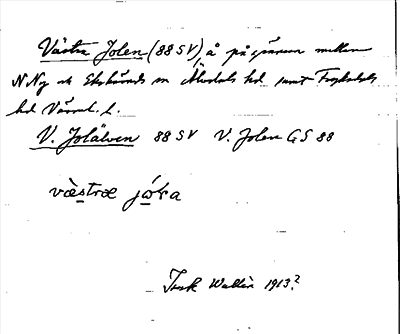 Västra Jolen (88 SV), å på gränsen mellan
N Ny ok Ekshärads sn Älvdals hd samt Fryksdals
hd Värml. l.
V. Jolälven 88 SV V. Jolen GS 88
væstræ jóɫa
Torsk Wallin 1913?